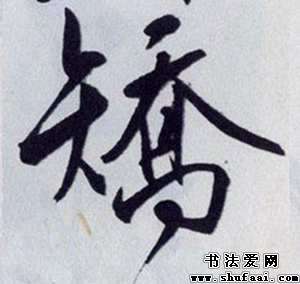 矯
书法爱网
www.shufaai.com